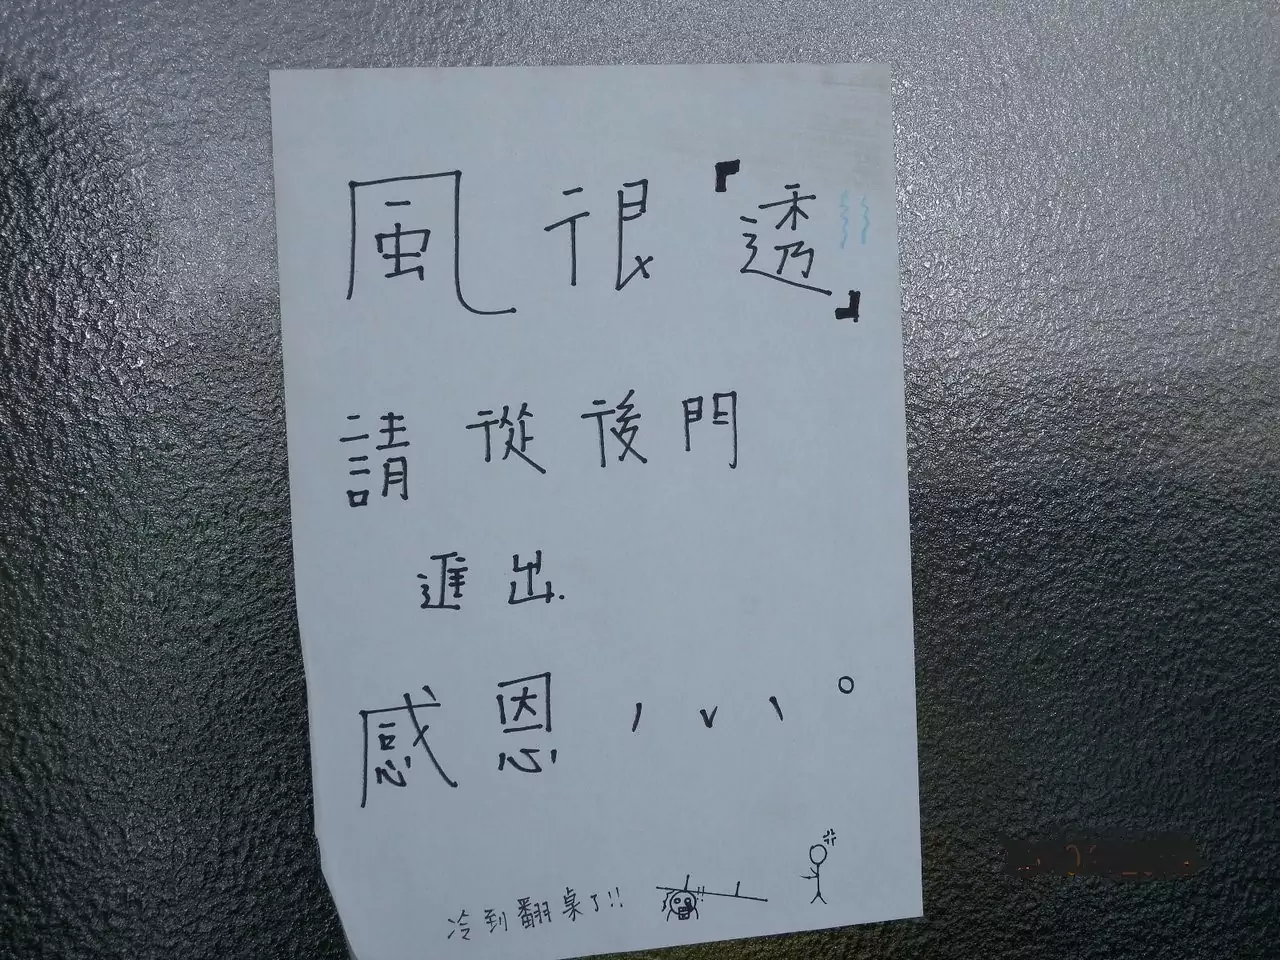 風很『透』
請從後門
進出.
感恩，v、。
冷到翻桌了!!